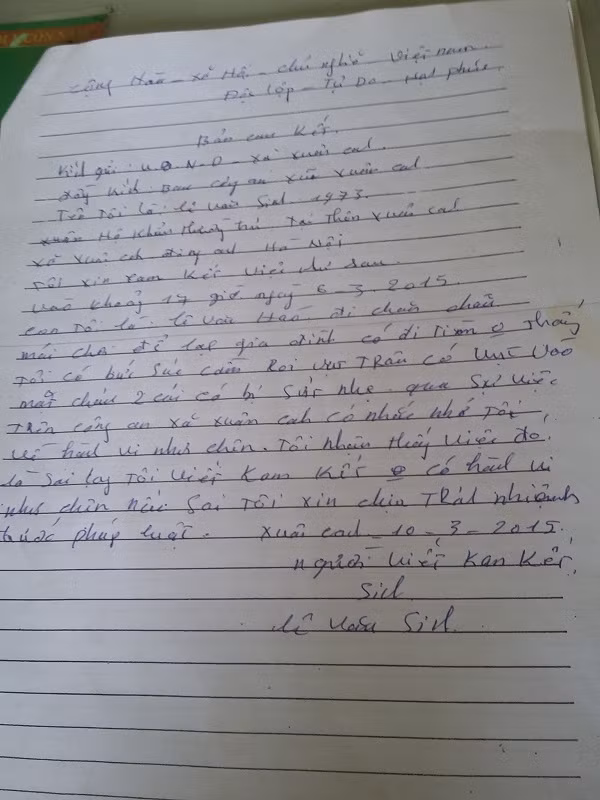 Cộng Hòa - Xã Hội - chủ nghĩa Việt nam.
Độc lập - Tự Do - Hạnh phúc.
Bản cam Kết.
Kính gửi U B N D - xã xuân canh.
đồng kính Ban công an xã xuân canh
Tên Tôi là lê văn Sinh 1973.
Hộ khẩu thường trú Tại Thôn xuân canh
xã xuân canh đông anh Hà Nội
Tôi xin cam Kết việc như sau.
vào khoảng 17 giờ ngày 6-3-2015.
con tôi là lê văn đi chăn
mải chơi để lạc gia đình có đi Tìm thấy
Tôi có bực Tức cầm Roi vụt Trân có vụt vào
mắt cháu 2 cái có bị sước nhẹ. qua sự việc
Trên công an xã xuân canh có nhắc nhở Tôi
về hành vi như trên. Tôi nhận thấy việc đó
là sai lay Tôi viết Kam Kết có hành vi
như trên nếu sai Tôi xin chịu Trách nhiệm
trước pháp luật. xuân canh - 10 - 3 - 2015.
người viết Kam Kết.
Sinh
lê văn Sinh